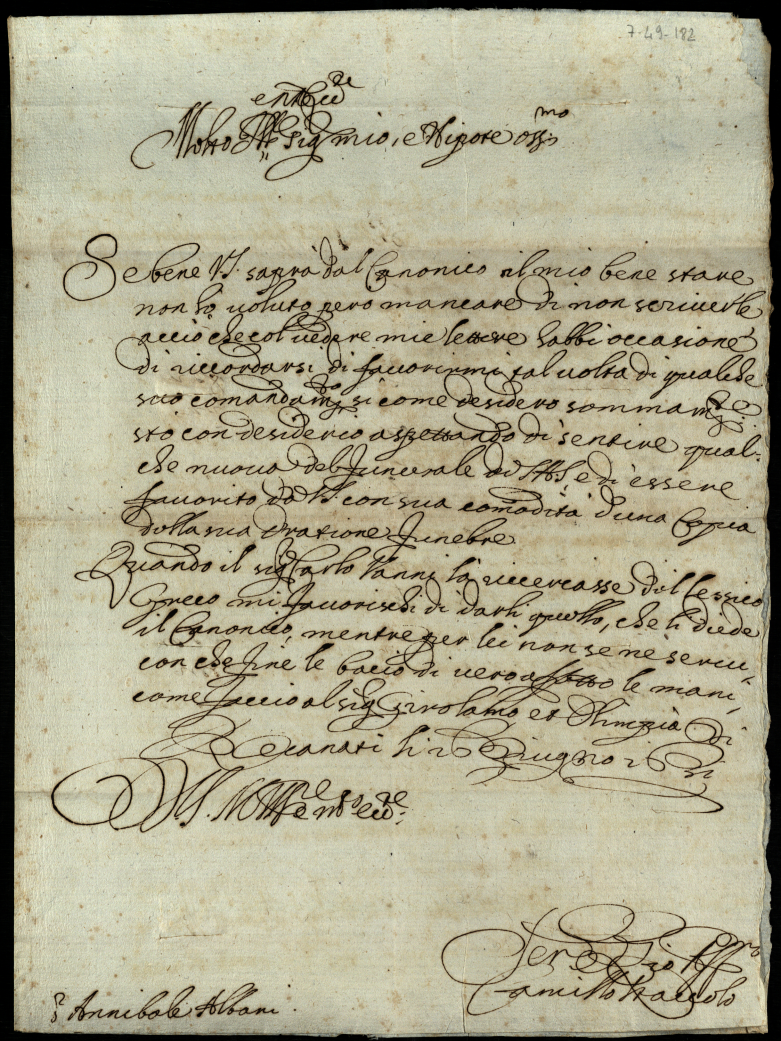 7-49-182
Molto Ill.re Sig. mio, e Nipote oss.mo
Se bene V.S. saprà dal Canonico il mio bene stare
non hò voluto però mancare di non scriverle
acciò che col vedere mie lettere habbi occasione
di riccordarsi di favorirmi tal volta di qualche
suo comandam.to si come desidero sommam.te e
sto con desiderio aspettando di sentire qual-
che nuova del funerale di S.A.S. e di essere
favorito da V.S. con sua comodità d'una Copia
della sua Oratione funebre
Quando il sig. Carlo Vanni la riccercasse del lessico
Greco mi favorischi di darli quello, che li diede
il Canonico, mentre per lei non se ne servi,
con che fine le bacio di vero affetto le mani,
come faccio al sig. Girolamo et Olimpia Di
Recanati li 26 Giugno 1631
D V.S. Molt' Ill.re e m.to ecc.te
Ser.re e Zio Aff.mo
Camillo
S.r Annibale Albani.